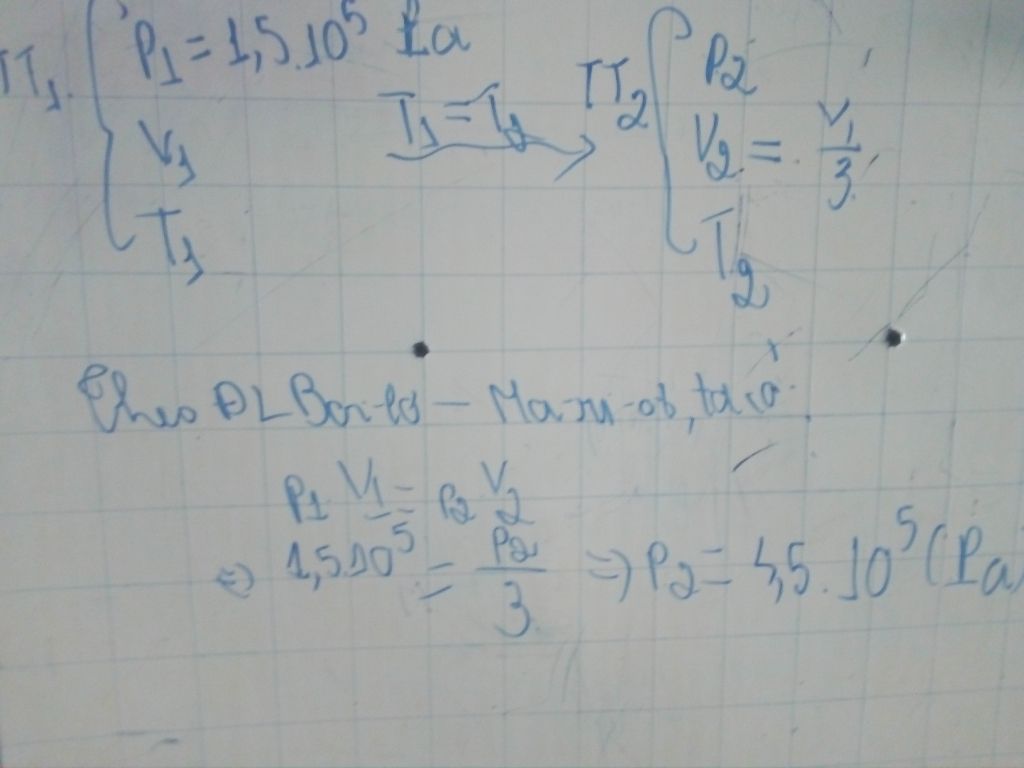 TT1. { P1 = 1,5.10^5 Pa
V1
T1
T1 = T2 →
TT2 { P2
V2 = V1/3
T2
Theo ĐL Bôi-lơ – Ma-ri-ốt, ta có
P1 V1 = P2 V2
⇔ 1,5.10^5 = P2/3 ⇒ P2 = 4,5.10^5 (Pa)